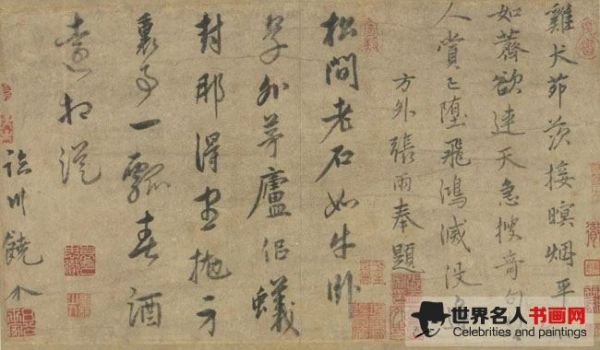 雞犬茆茨接暝烟平
如薺欲連天急搜奇句
人賞已墮飛鴻滅没
方外張雨奉題
松間老石如牛臥
草外茅廬佀蟻
封那得盡抛方
裏事一瓢春酒
遠相從
臨川饒介
世界名人书画网
Celebrities and paintings